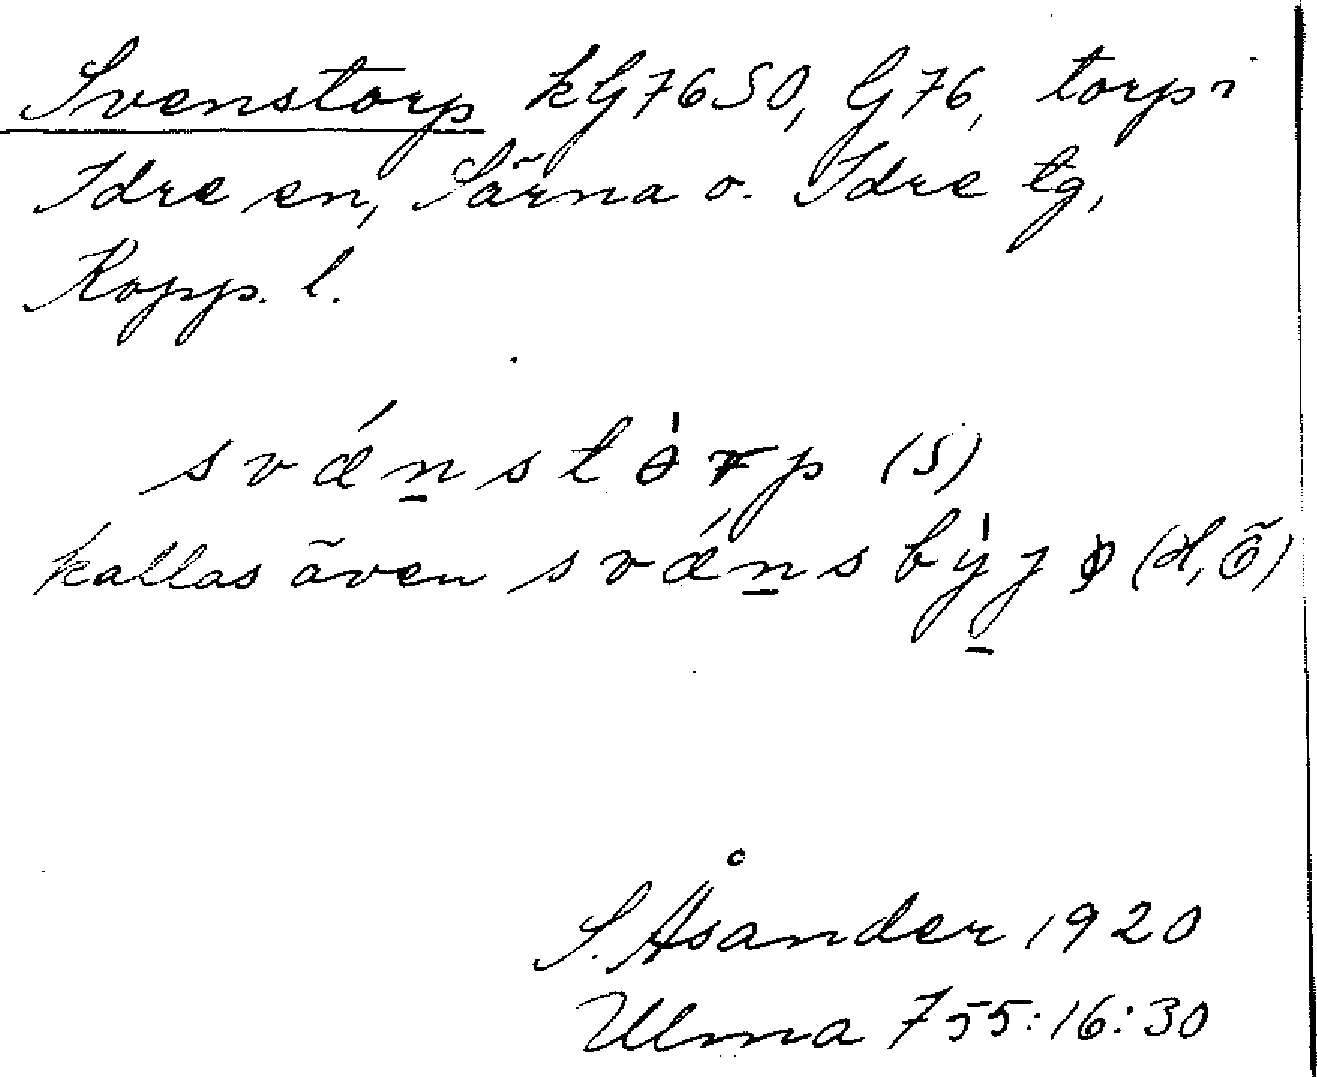 Svenstorp kG7650, G76, torp i
Idre sn, Särna o. Idre tg,
Kopp. l.
svǽn̲stȯrp (S)
kallas även svǽn̲sby̍j (d, ö)
S. Åsander 1920
Ulma 755:16:30